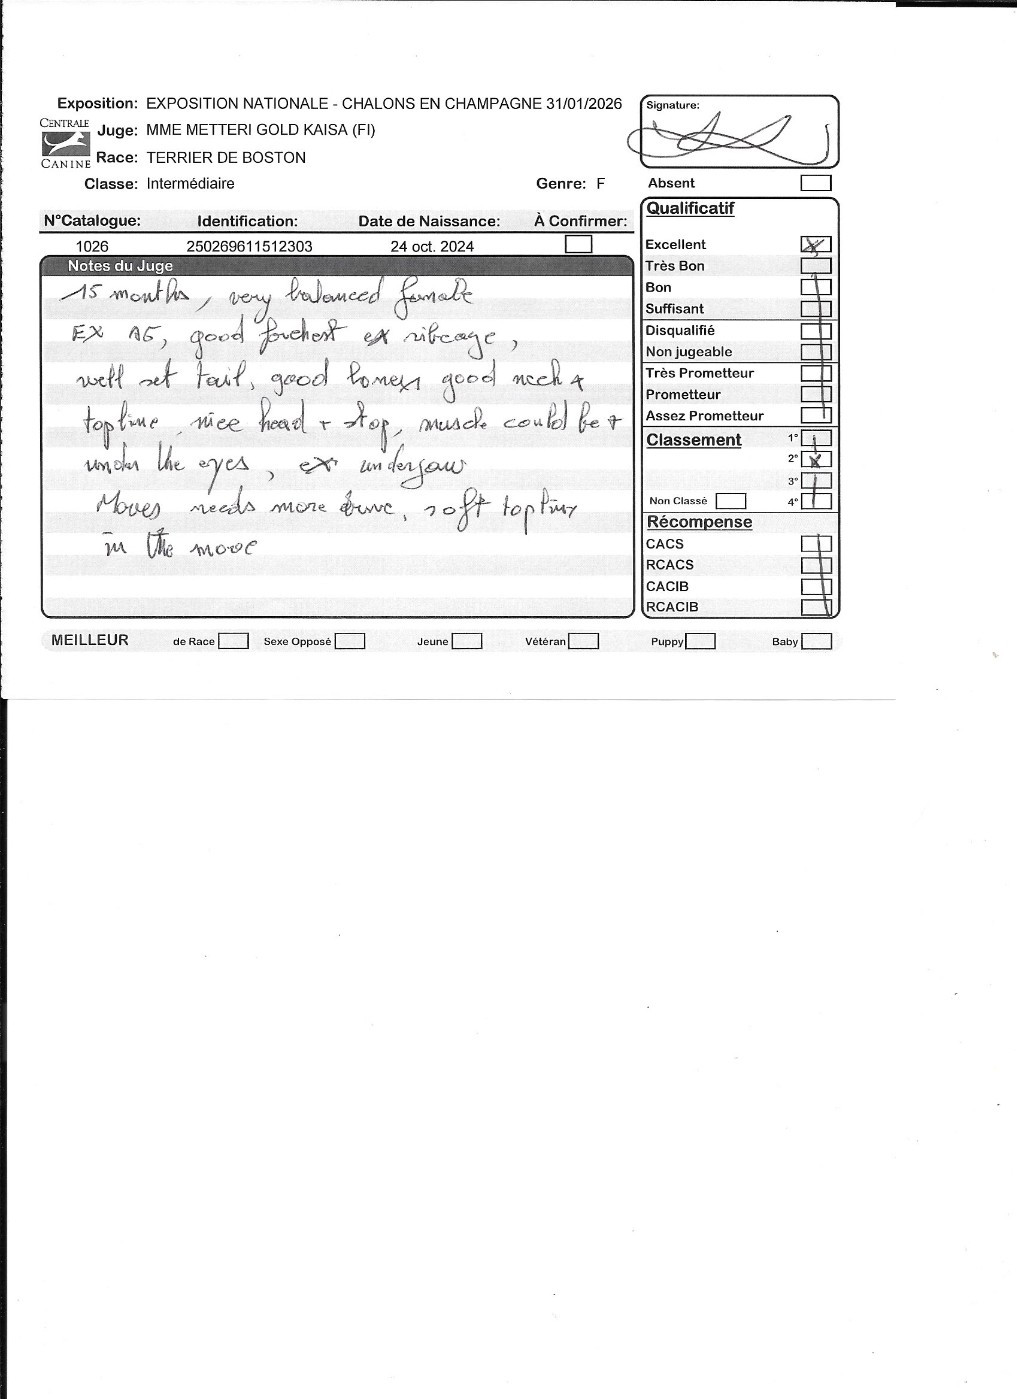 Exposition: EXPOSITION NATIONALE - CHALONS EN CHAMPAGNE 31/01/2026
Signature:
CENTRALE
CANINE
Juge: MME METTERI GOLD KAISA (FI)
Race: TERRIER DE BOSTON
Classe: Intermédiaire
Genre: F
Absent
N°Catalogue: Identification: Date de Naissance: À Confirmer:
1026 250269611512303 24 oct. 2024
Notes du Juge
15 months, very balanced female
EX, good forchest ex ribcage,
well set tail, good bones good neck +
topline, nice head + stop, could be +
under the eyes, ex underjaw
Moves needs more, soft topline
in the move
Qualificatif
Excellent
Très Bon
Bon
Suffisant
Disqualifié
Non jugeable
Très Prometteur
Prometteur
Assez Prometteur
Classement 1°
2°
3°
Non Classé 4°
Récompense
CACS
RCACS
CACIB
RCACIB
MEILLEUR de Race Sexe Opposé Jeune Vétéran Puppy Baby